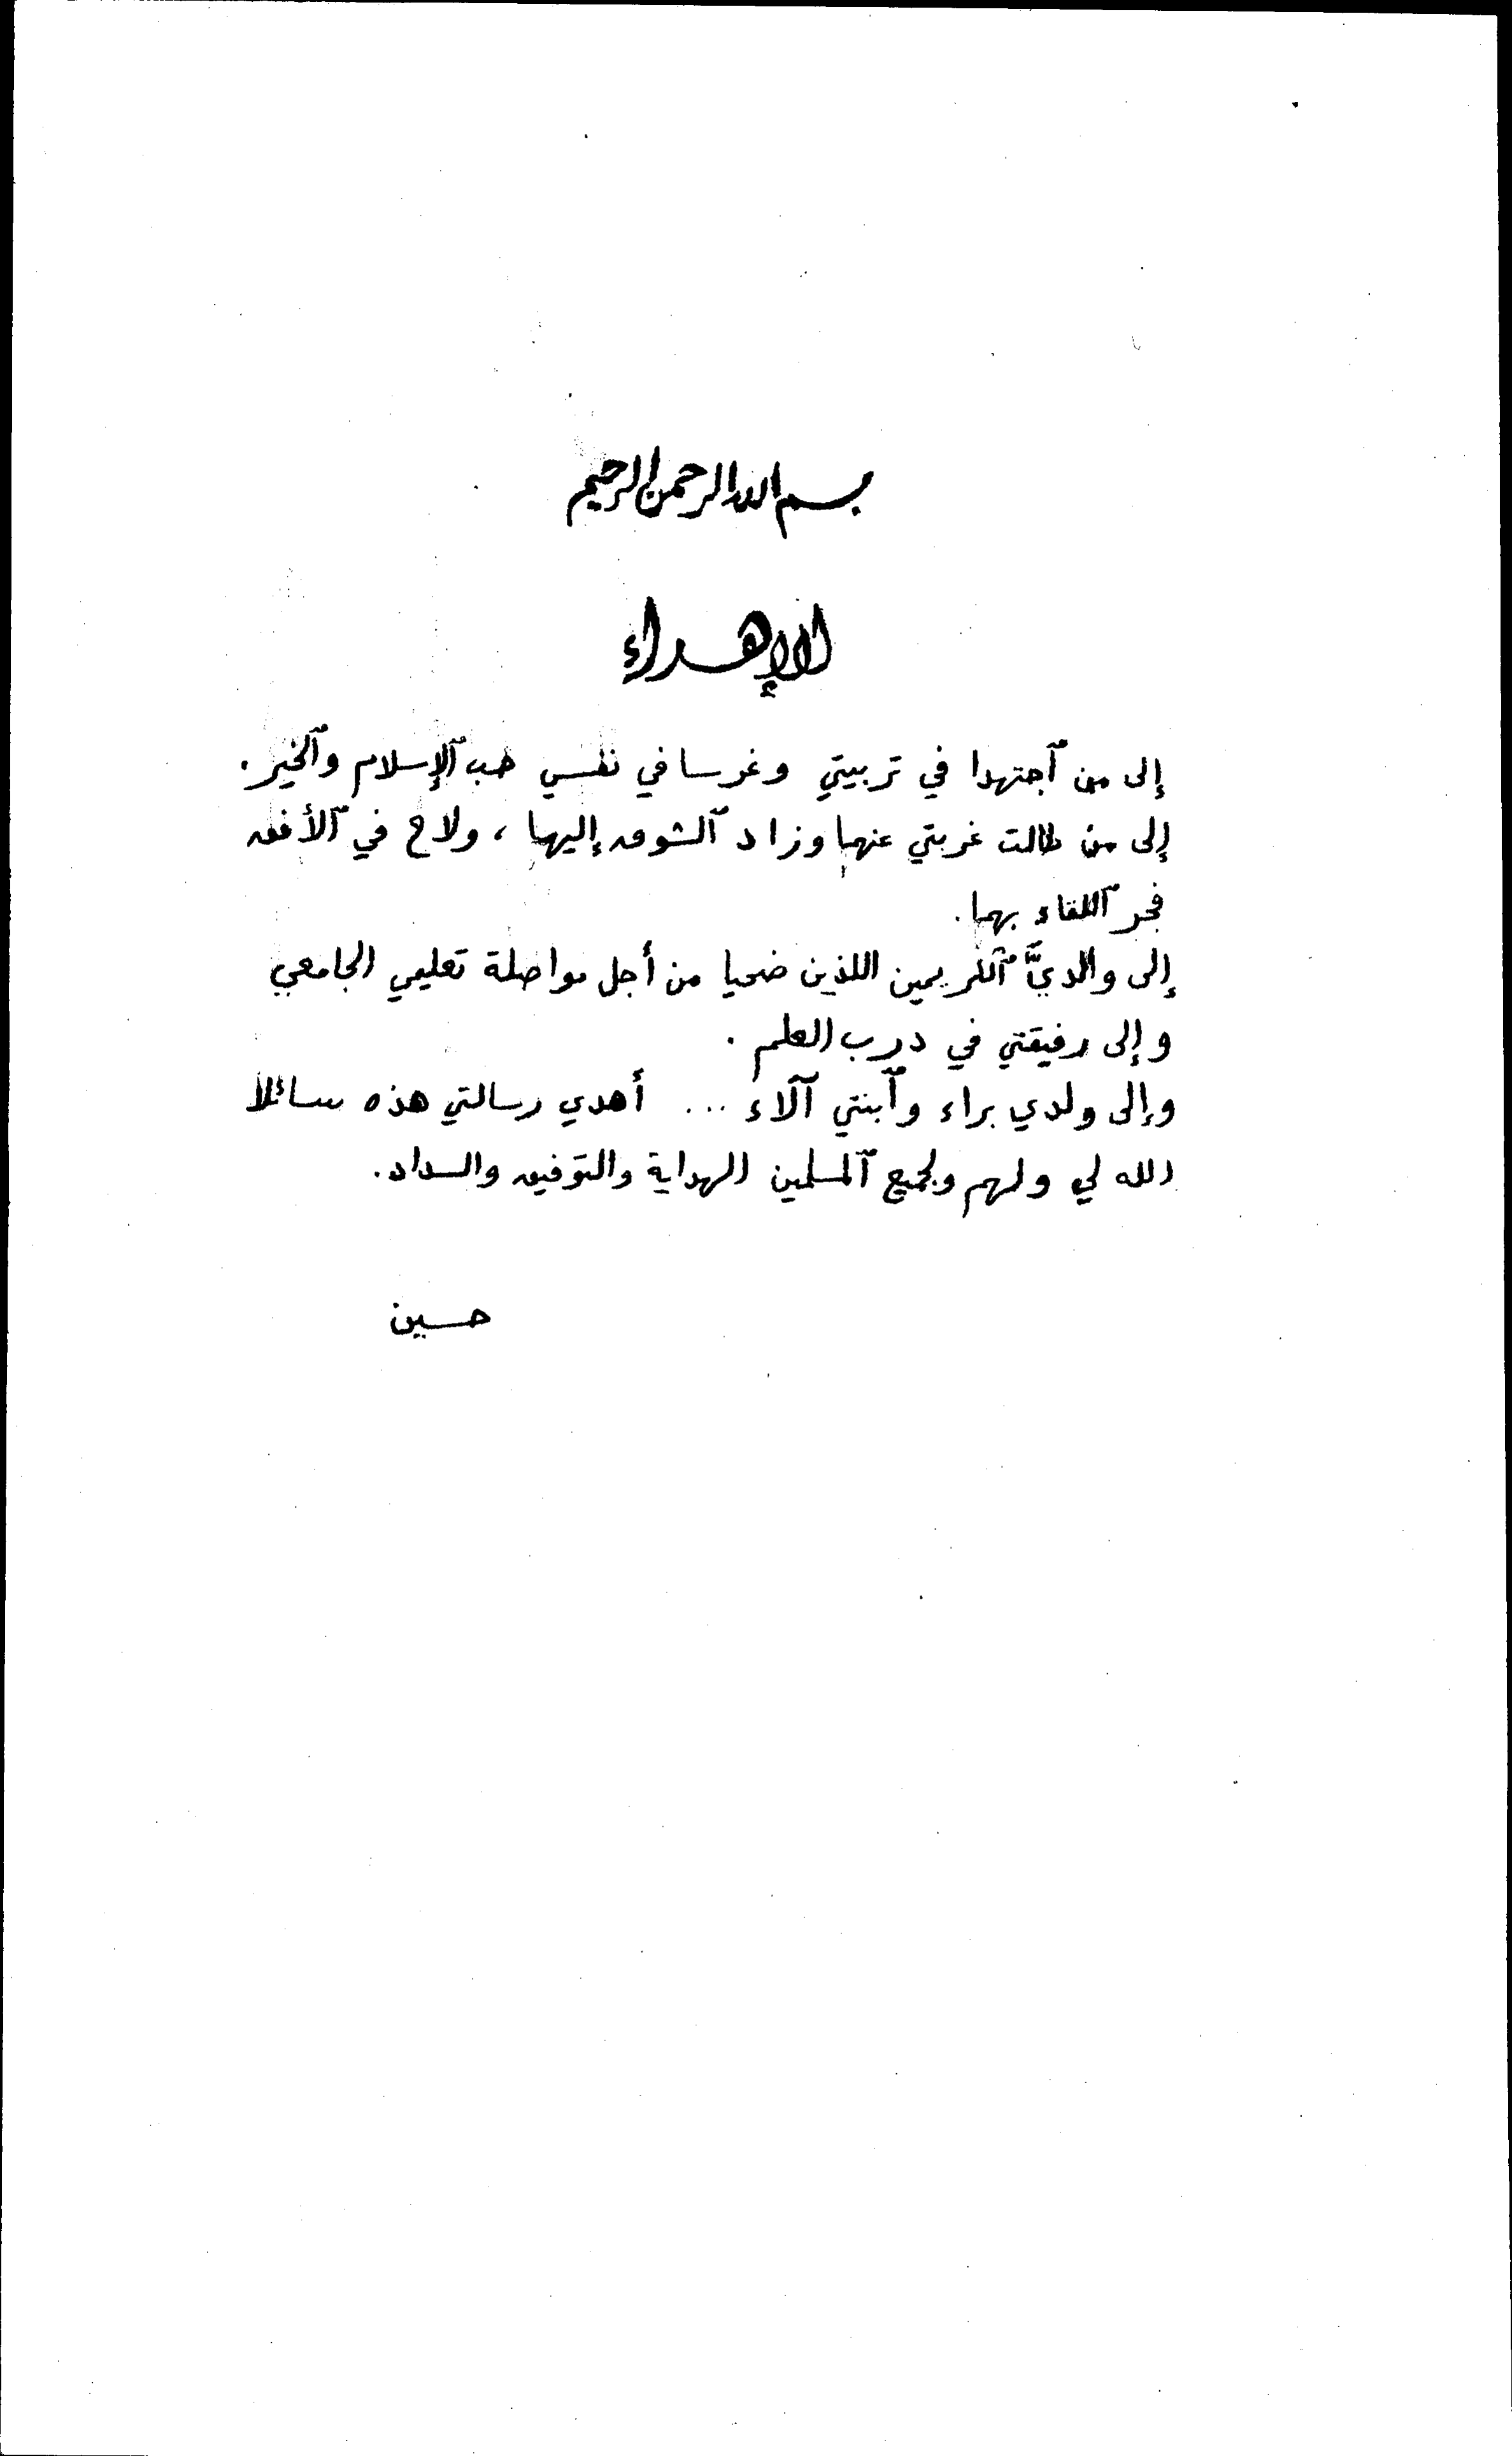 بسم الله الرحمن الرحيم
الإهداء
إلى من ٱجتهدا في تربيتي وغرسا في نفسي حب ٱلإسلام وٱلخير .
إلى من طالت غربتي عنهما وزاد ٱلشوق إليهما ، ولاح في ٱلأفق
فجر ٱللقاء بهما .
إلى والديَّ ٱلكريمين اللذين ضحيا من أجل مواصلة تعليمي الجامعي
وإلى رفيقتي في درب العلم .
وإلى ولدي براء وٱبنتي آلاء ... أهدي رسالتي هذه سائلا
الله لي ولهم ولجميع ٱلمسلمين الهداية والتوفيق والسداد .
حسين